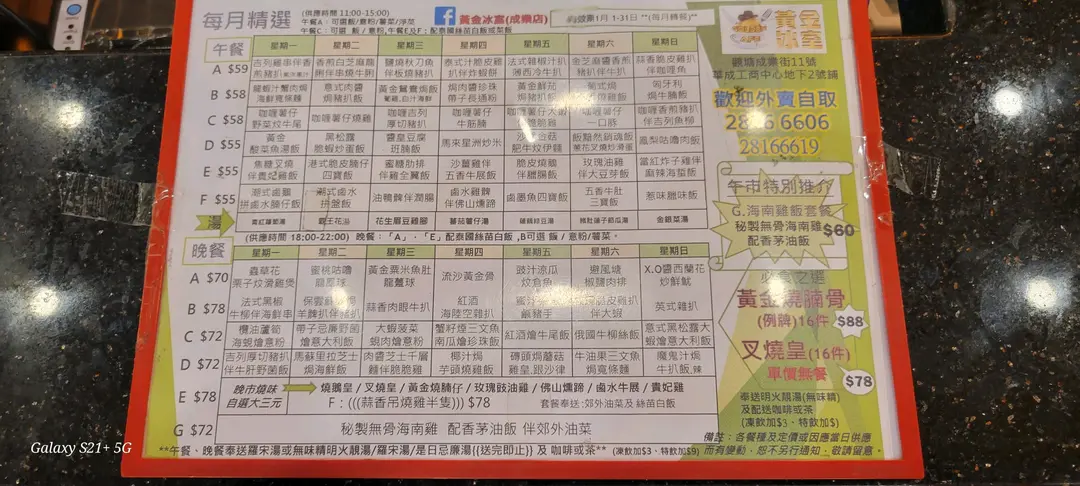 每月精選
(供應時間 11:00-15:00)
午餐A：可選飯/意粉/薯菜/淨菜
黃金冰室(成業店)
1月 1-31日 **(每月轉餐)**
黃金冰室
觀塘成業街11號
華成工商中心地下2號舖
歡迎外賣自取
2816 6606
28166619
午餐 星期一 星期二 星期三 星期四 星期五 星期六 星期日
A $59
吉列雞串伴香煎豬扒
香煎白芝麻龍脷伴串燒牛脷
鹽燒秋刀魚伴板燒豬扒
泰式汁脆皮雞扒伴炸蝦餅
法式雜椒汁扒薄西冷牛扒
金芝麻醬香煎豬扒伴牛扒
蒜香脆皮雞扒伴咖喱魚
B $58
龍蝦汁蟹肉焗海鮮寬條麵
意式肉醬焗豬扒飯
黃金鴛鴦焗飯
焗肉醬珍珠帶子長通粉
黃金鮮茄焗豬扒飯
葡式焗雞扒飯
匈牙利焗牛腩飯
C $58
咖喱薯仔野菜炆牛尾
咖喱薯仔燒雞
咖喱吉列厚切豬扒
咖喱薯仔牛筋腩
咖喱薯仔大
咖喱薯仔一口豚
咖喱香煎豬扒伴吉列魚柳
D $55
黃金酸菜魚湯飯
黑松露脆蝦炒蛋飯
醬皇豆腐斑腩飯
馬來星洲炒米
金菇肥牛炆伊麵
飯黯然銷魂飯
鳳梨咕嚕肉飯
E $55
焦糖叉燒伴貴妃雞飯
港式脆皮腩仔四寶飯
蜜糖肋排伴雞全翼飯
沙薑雞伴五香牛展飯
脆皮燒鵝伴臘腸飯
玫瑰油雞伴大豆芽飯
當紅炸子雞伴麻辣海蜇飯
F $55
潮式鹵鵝拼鹵水腩仔飯
潮式鹵水拼盤飯
油鴨髀伴潤腸
鹵水雞髀伴佛山燻蹄
鹵墨魚四寶飯
五香牛肚三寶飯
惹味臘味飯
湯
青紅蘿蔔湯
花生眉豆雞腳
蕃茄薯仔湯
金銀菜湯
(供應時間 18:00-22:00) 晚餐：「A」-「E」配泰國絲苗白飯 ,B可選 飯 / 意粉/薯菜。
晚餐 星期一 星期二 星期三 星期四 星期五 星期六 星期日
A $70
蟲草花栗子炆滑雞煲
蜜桃咕嚕
黃金粟米魚肚龍躉球
流沙黃金骨
豉汁涼瓜炆倉魚
避風塘椒鹽肉排
X.O醬西蘭花炒鮮魷
B $78
法式黑椒牛柳伴海鮮串
保雲
蒜香肉眼牛扒
紅酒海陸空雜扒
蜜汁
脆皮雞扒伴大蝦
英式雜扒
C $72
欖油蘆筍海蜆燴意粉
帶子忌廉野菌燴意大利飯
大蝦菠菜蜆肉燴意粉
蟹籽煙三文魚南瓜燴珍珠飯
紅酒燴牛尾飯
俄國牛柳絲飯
意式黑松露大蝦燴意大利飯
D $72
吉列厚切豬扒伴牛肝野菌飯
馬蘇里拉芝士焗豬扒飯
肉醬芝士千層麵伴脆脆雞
椰汁焗芋頭燒雞飯
磚頭焗蘑菇雞皇.跟沙律
牛油果三文魚焗寬條麵
魔鬼汁焗牛扒飯.辣
E $78
晚市燒味自選大三元
燒鵝皇 / 叉燒皇 / 黃金燒腩仔 / 玫瑰豉油雞 / 佛山燻蹄 / 鹵水牛展 / 貴妃雞
F：(((蒜香吊燒雞半隻))) $78 套餐奉送 :郊外油菜及 絲苗白飯
G $72
秘製無骨海南雞 配香茅油飯 伴郊外油菜
**午餐、晚餐奉送羅宋湯或無味精明火靚湯/羅宋湯/是日忌廉湯((送完即止)) 及 咖啡或茶** (凍飲加$3、特飲加$9)
午市特別推介
G.海南雞飯套餐
秘製無骨海南雞
配香茅油飯
$60
必食之選
黃金燒腩骨
(例牌)16件 $88
叉燒皇(16件)
單價無餐
$78
奉送明火靚湯(無味精)
及配送咖啡或茶
(凍飲加$3、特飲加$)
備註：各餐種及定價或因應當日供應
而有變動，恕不另行通知，敬請留意。
Galaxy S21+ 5G